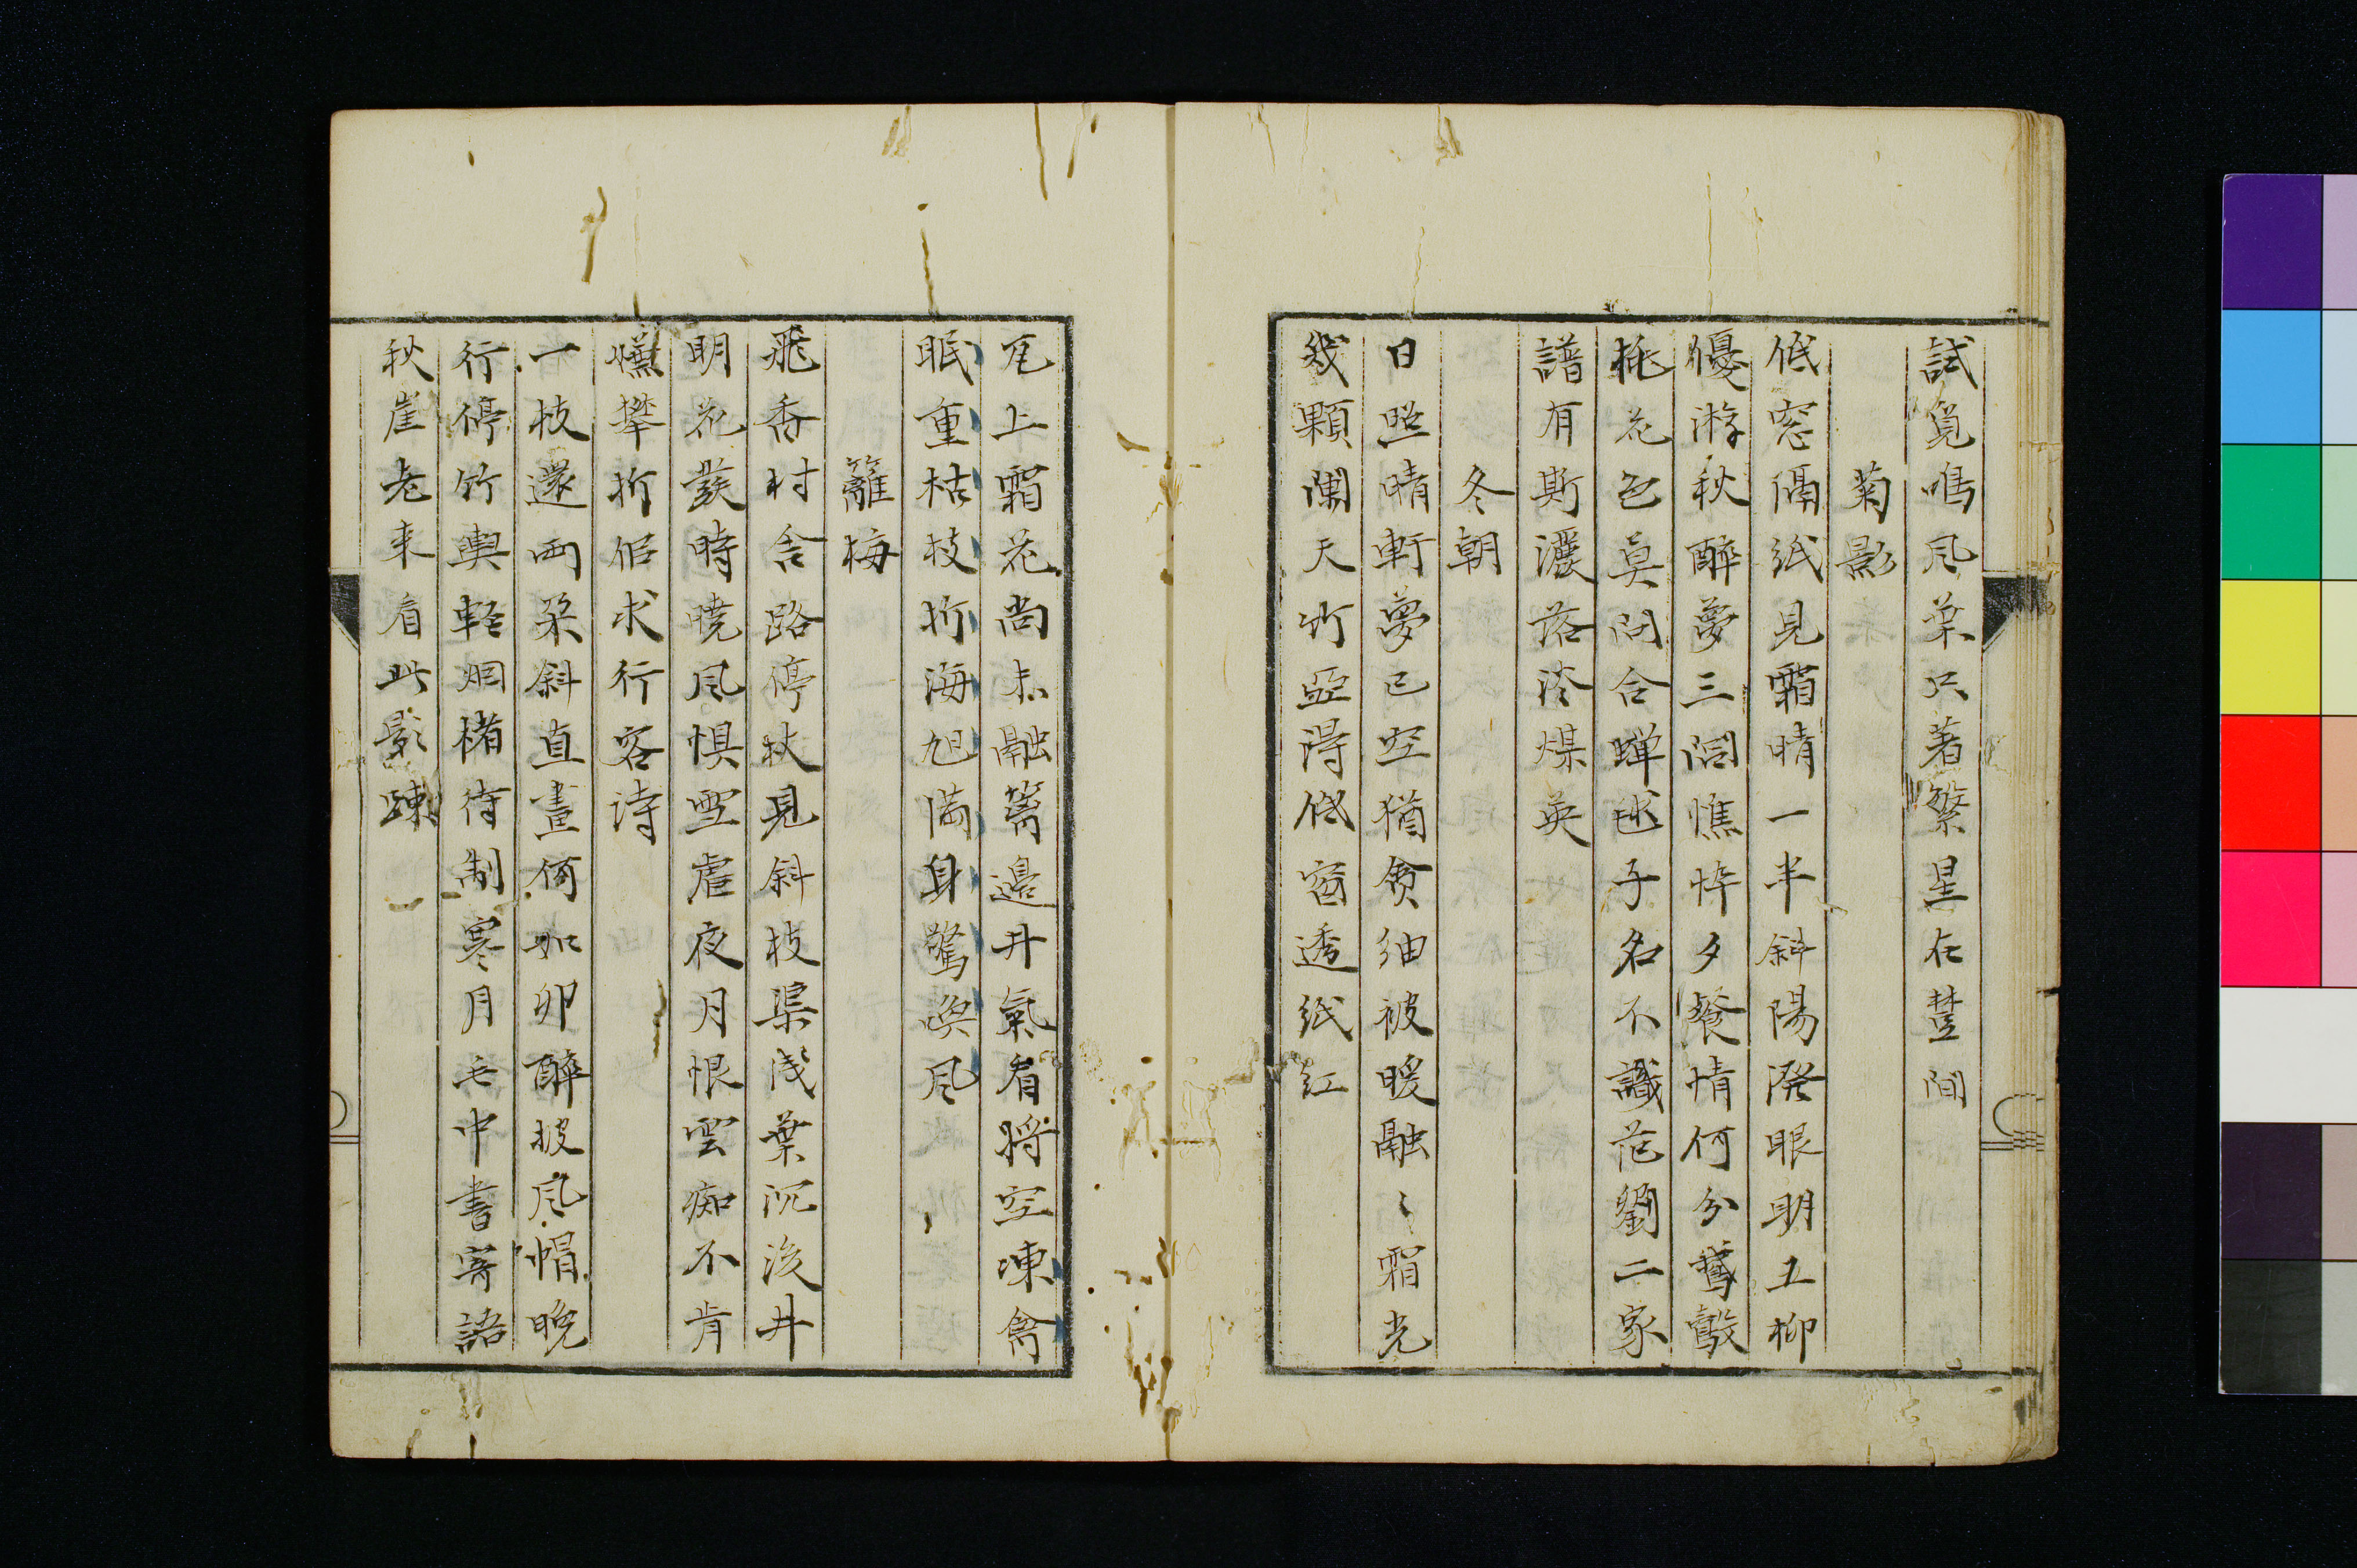 試覓鳴風葉只著繁星在莖間
菊影
低窓隔紙見霜晴一半斜陽潑眼明五柳
優游秋醉夢三閭憔悴夕餐情何分鵞鷇
桃花色莫問合蟬毬子名不識范劉二家
譜有斯瀎落冷煤英
冬朝
日照晴軒夢已空猶貪紬被暖融〻霜光
幾顆闌天竹亞得低窗透紙紅
瓦上霜花尚未融簷邊升氣看將空凍禽
眠重枯枝折海旭滿身驚喚風
籬梅
飛香村舍路停杖見斜枝渠浅葉沉後井
明花發時曉風惧雪虐夜月恨雲痴不肯
憮攀折佀求行客诗
一枝還両朶斜直畫何如卯醉披風帽晚
行停竹輿軽烟楮待制寒月毛中書寄語
秋崖老来看此影踈